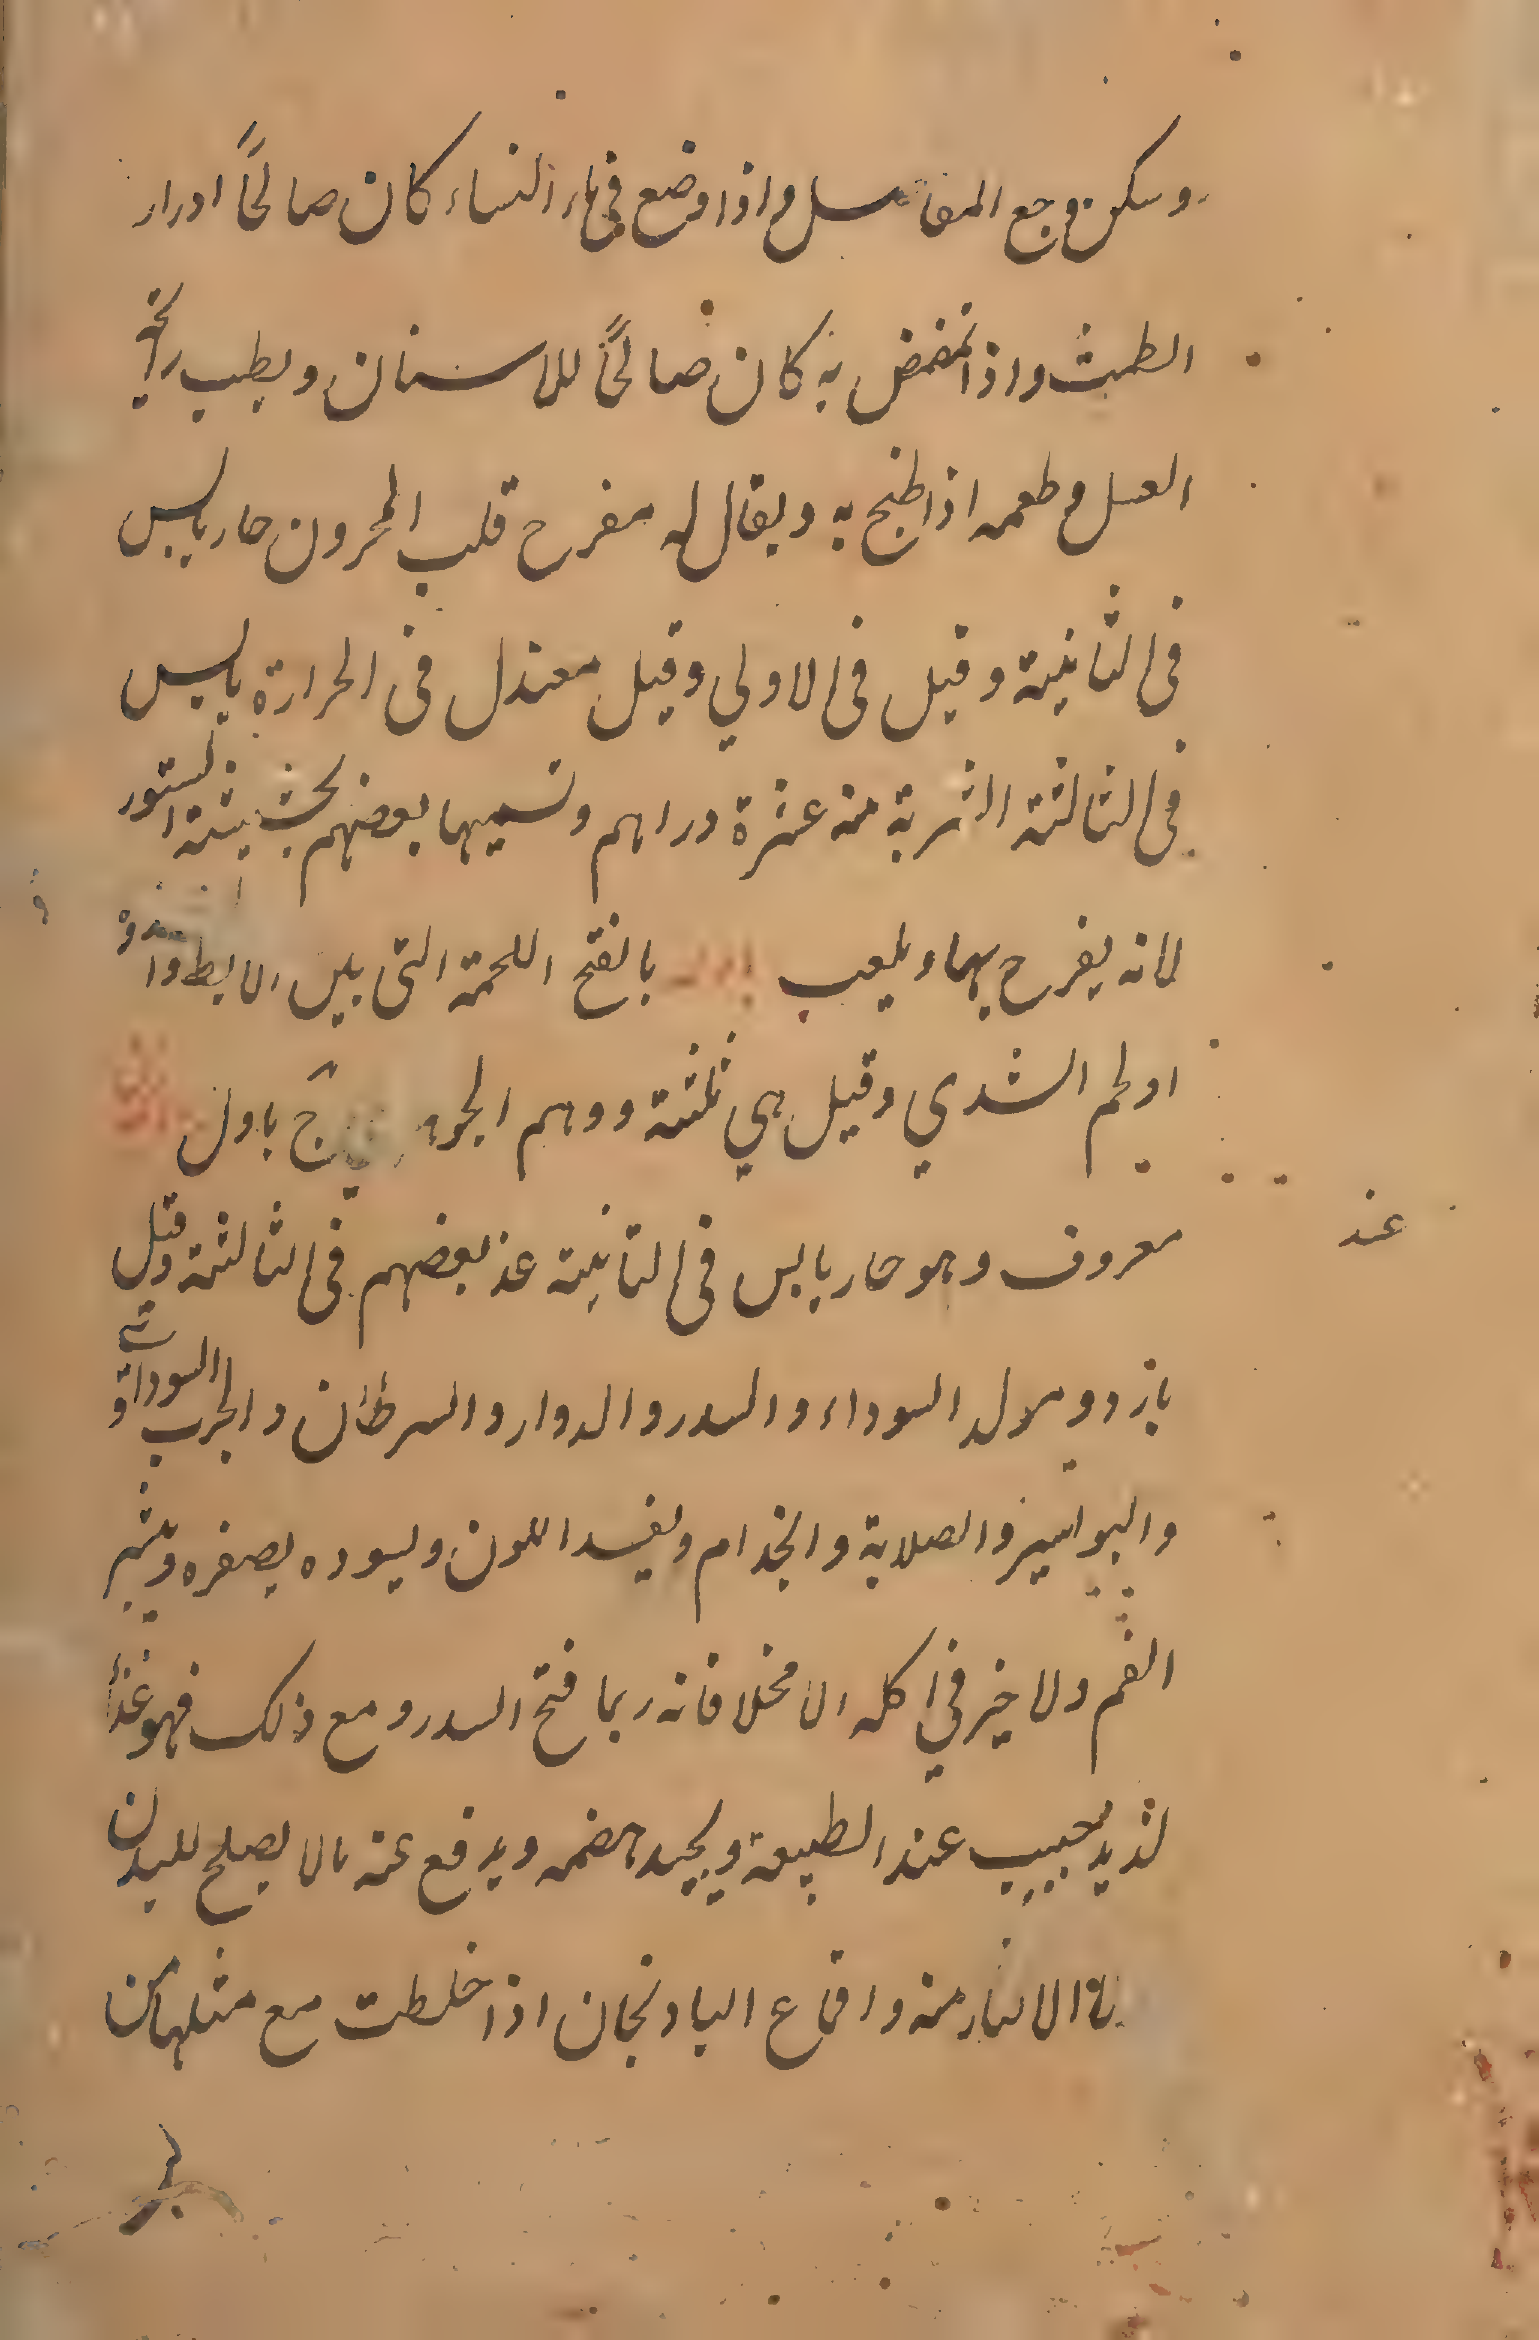 وسكن وجع المفاصل واذا وضع في ماء النساء كان صالحاً ادرار
الطمث واذا تمضمض به كان صالحاً للاسنان ويطيب رائحة
العسل وطعمه اذا طبخ به ويقال له مفرح قلب المحزون حار يابس
في الثانية وقيل في الاولي وقيل معتدل في الحرارة يابس
في الثالثة الشربة منه عشرة دراهم وتسميها بعضهم بحشيشة السنور
لانه يفرح بها ويلعب بالفتح اللحمة التي بين الابط والثندوة
او لحم الثدي وقيل هي ثلثة ووهم الجوهري ج باول
معروف وهو حار يابس في الثانية عند بعضهم في الثالثة وقيل
عند
بارد ومولد السوداء والسدر والدوار والسرطان والجرب السوداوي
والبواسير والصلابة والجذام ويفسد اللون ويسوده يصفره ويبثر
الفم ولا خير في اكله الا مخلا فانه ربما فتح السدر ومع ذلك فهو غذا
لذيذ حبيب عند الطبيعة ويجيد هضمه ويدفع عنه مالا يصلح للبدن
الا اكثار منه واقماع البادنجان اذا خلطت مع مثلها من